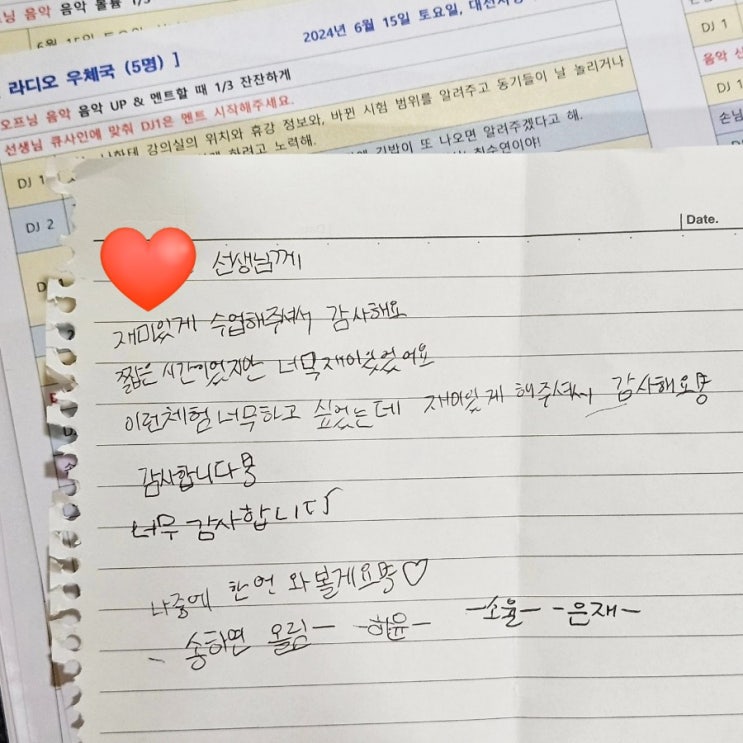 2024년 6월 15일 토요일,
라디오 우체국 (5명) ]
오프닝 음악 음악 UP & 멘트할 때 1/3 잔잔하게
선생님 큐사인에 맞춰 DJ1은 멘트 시작해주세요.
DJ 1
강의실의 위치와 휴강 정보와, 바뀐 시험 범위를 알려주고 동기들이 날 놀리거나
하려고 노력해.
또 나오면 알려주겠다고 해.
DJ 2
DJ 1
음악
DJ 1
손님
Date.
선생님께
재미있게 수업해주셔서 감사해요
짧은 시간이었지만 너무 재미있었어요
이런체험 너무하고 싶었는데 재미있게 해주셔서 감사해요
감사합니다
너무 감사합니다
나중에 한번 와볼게요 ♡
송하연 올림- -하윤- -소율- -은재-